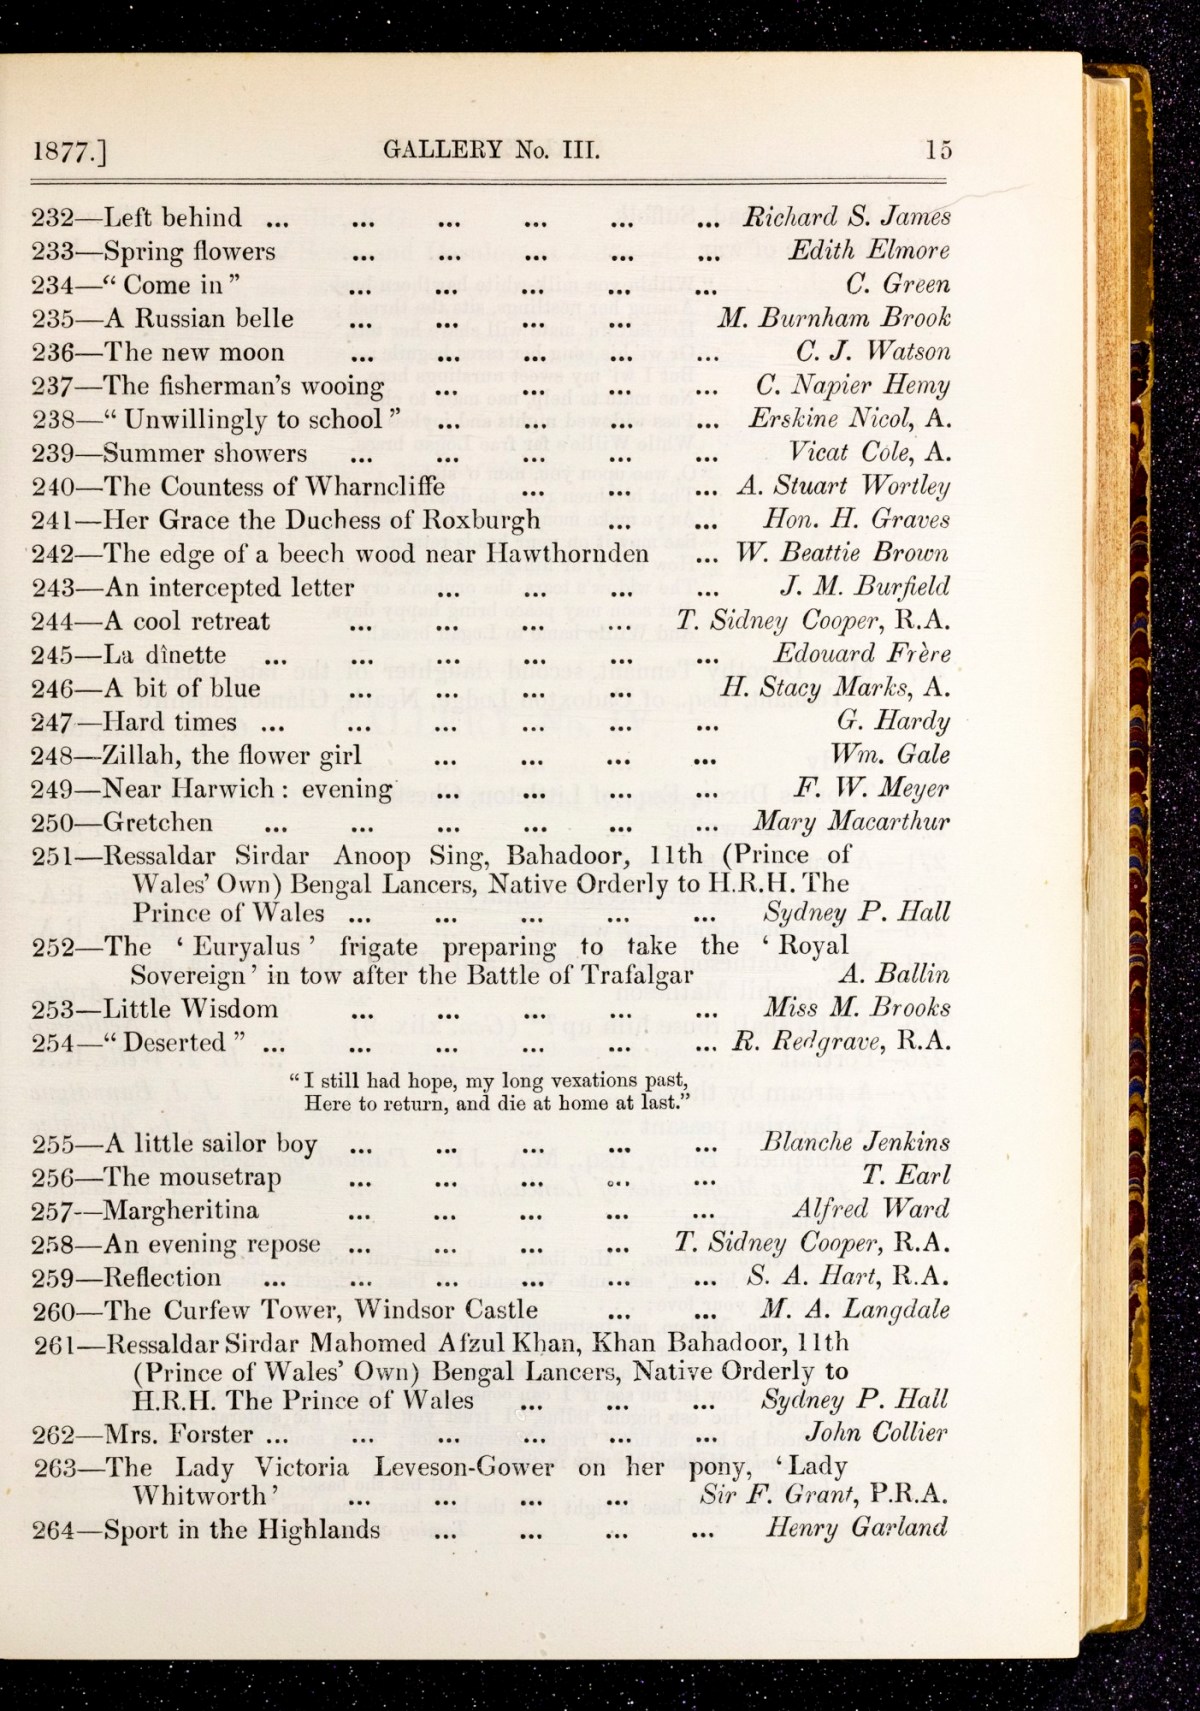 1877.] GALLERY No. III. 15
232—Left behind ... ... ... ... ... ... Richard S. James
233—Spring flowers ... ... ... ... ... Edith Elmore
234—“ Come in ” ... ... ... ... ... C. Green
235—A Russian belle ... ... ... ... M. Burnham Brook
236—The new moon ... ... ... ... ... C. J. Watson
237—The fisherman’s wooing ... ... ... ... C. Napier Hemy
238—“ Unwillingly to school ” ... ... ... ... Erskine Nicol, A.
239—Summer showers ... ... ... ... ... Vicat Cole, A.
240—The Countess of Wharncliffe ... ... ... A. Stuart Wortley
241—Her Grace the Duchess of Roxburgh ... ... Hon. H. Graves
242—The edge of a beech wood near Hawthornden ... W. Beattie Brown
243—An intercepted letter ... ... ... ... J. M. Burfield
244—A cool retreat ... ... ... ... T. Sidney Cooper, R.A.
245—La dînette ... ... ... ... ... ... Edouard Frère
246—A bit of blue ... ... ... ... H. Stacy Marks, A.
247—Hard times ... ... ... ... ... ... G. Hardy
248—Zillah, the flower girl ... ... ... ... Wm. Gale
249—Near Harwich : evening ... ... ... F. W. Meyer
250—Gretchen ... ... ... ... ... ... Mary Macarthur
251—Ressaldar Sirdar Anoop Sing, Bahadoor, 11th (Prince of
Wales’ Own) Bengal Lancers, Native Orderly to H.R.H. The
Prince of Wales ... ... ... ... ... Sydney P. Hall
252—The ‘ Euryalus ’ frigate preparing to take the ‘ Royal
Sovereign ’ in tow after the Battle of Trafalgar A. Ballin
253—Little Wisdom ... ... ... ... ... Miss M. Brooks
254—“ Deserted ” ... ... ... ... ... ... R. Redgrave, R.A.
“ I still had hope, my long vexations past,
Here to return, and die at home at last.”
255—A little sailor boy ... ... ... ... ... Blanche Jenkins
256—The mousetrap ... ... ... ... ... T. Earl
257—Margheritina ... ... ... ... ... Alfred Ward
258—An evening repose ... ... ... ... T. Sidney Cooper, R.A.
259—Reflection ... ... ... ... ... ... S. A. Hart, R.A.
260—The Curfew Tower, Windsor Castle ... ... M. A. Langdale
261—Ressaldar Sirdar Mahomed Afzul Khan, Khan Bahadoor, 11th
(Prince of Wales’ Own) Bengal Lancers, Native Orderly to
H.R.H. The Prince of Wales ... ... ... Sydney P. Hall
262—Mrs. Forster ... ... ... ... ... ... John Collier
263—The Lady Victoria Leveson-Gower on her pony, ‘ Lady
Whitworth ’ ... ... ... ... Sir F. Grant, P.R.A.
264—Sport in the Highlands ... ... ... ... Henry Garland